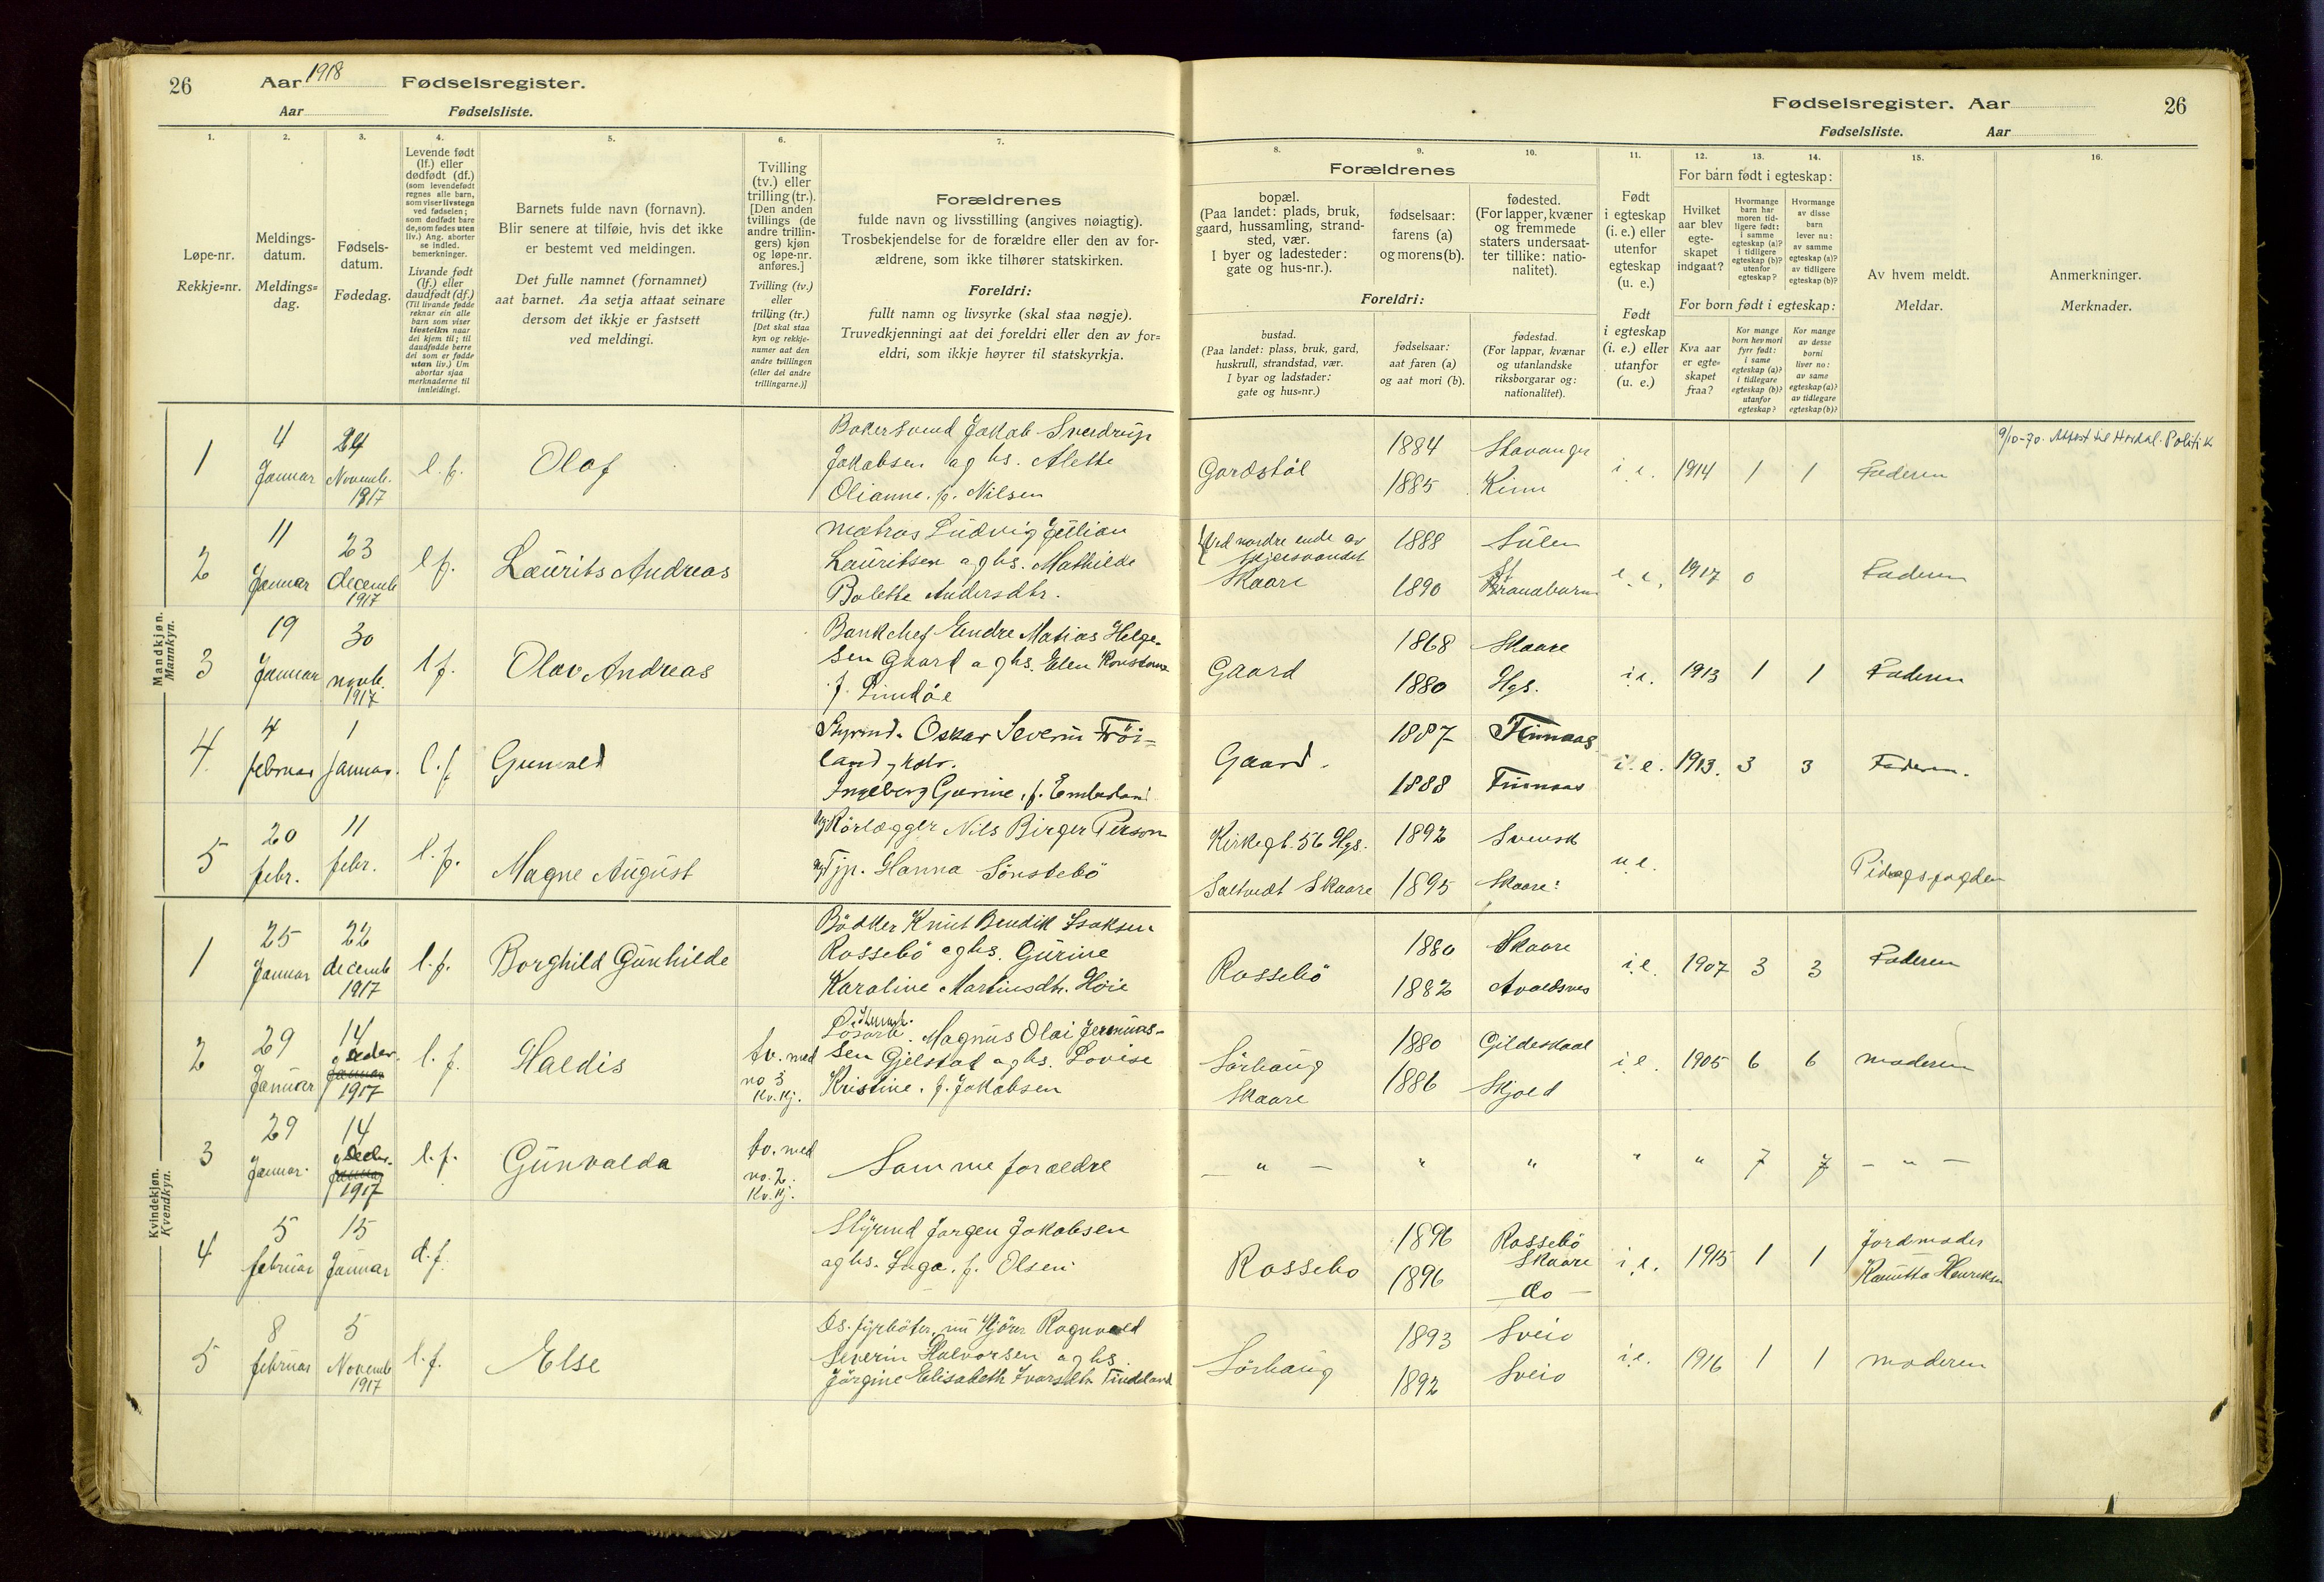 26 Aar 1918 Fødselsregister.
Aar Fødselsliste.
1. 2. 3. 4. 5. 6. 7.
Løpe-nr.
Rekkje=nr.
Meldings-
datum.
Meldings=
dag.
Fødsels-
datum.
Fødedag.
Levende født
(lf.) eller
dødfødt (df.)
(som levendefødt
regnes alle barn,
som viser livstegn
ved fødselen;
som dødfødt bare
de, som fødes uten
liv.) Ang. aborter
se indled.
bemerkninger.
Livande født
(lf.) eller
daudfødt (df.)
(Til livande fødde
reknar ein alle
barn som viser
livsteikn naar
dei kjem til; til
daudfødde berre
dei som er fødde
utan liv.) Um
abortar sjaa
merknaderne til
innleidingi.
Barnets fulde navn (fornavn).
Blir senere at tilføie, hvis det ikke
er bestemt ved meldingen.
Det fulle namnet (fornamnet)
aat barnet. Aa setja attaat seinare
dersom det ikkje er fastsett
ved meldingi.
Tvilling
(tv.) eller
trilling (tr.).
[Den anden
tvillings (de
andre trillin-
gers) kjøn
og løpe-nr.
anføres.]
Tvilling (tv.)
eller
trilling (tr.)
[Det skal staa
kyn og rekkje-
numer aat den
andre tvillingen
(eller dei andre
trillingarne.)]
Forældrenes
fulde navn og livsstilling (angives nøiagtig).
Trosbekjendelse for de forældre eller den av for-
ældrene, som ikke tilhører statskirken.
Foreldri:
fullt namn og livsyrke (skal staa nøgje).
Truvedkjenningi aat dei foreldri eller den av for=
eldri, som ikkje høyrer til statskyrkja.
Mandkjøn.
Mannkyn.
1 4 Januar 24 Novemb. 1917 l.f. Olaf
Bakersvend Jakob Sverdrup
Jakobsen og hs. Alette
Olianne. f. Nilsen
2 11 Januar 23 decemb 1917 l f. Laurits Andreas
Matros Ludvig Julian
Lauritsen og hs. Mathilde
Bolette Andersdtr.
3 19 Januar 30 novb. 1917 l f. Olav Andreas
Bankchef Endre Matias Helge-
sen Gaard og hs. Elen
f. Lindøe
4. 4 februar 1 Januar. l.f. Gunvald
Styrmd. Oskar Severin Fröi=
land, hstr.
Ingeborg Gurine, f.
5 20 febr. 11 febr. l.f. Magne August
Rörlægger Nils Birger Person
Tjp. Hanna Sönstebö
Kvindekjøn.
Kvendkyn.
1 25 Januar 22 decemb 1917 l.f. Borghild Gunhilde
Bödker Knut Bendik Isaksen
Rossebö og hs. Gurine
Karoline Martinsdtr. Höie
2 29 Januar 14 Decbr. Januar 1917 l.f. Haldis tv. med no 3 Kv.kj.
Løsarb. Magnus Olai Jeremias-
sen Gjelstad og hs. Lovise
Kristine. f. Jakobsen
3 29 Januar 14 Decbr. Januar 1917 l.f. Gunvalda tv. med no. 2. Kv.kj.
Samme forældre
4 5 februar 15 Januar d.f.
Styrmd Jørgen Jakobsen
og hs. Inga. f. Olsen
5 8 februar 5 Novemb 1917 l.f. Else
Ds. fyrböter, nu Kjörer Ragnvald
Severin Halvorsen og hs.
Jörgine Elisabeth Ivarsdtr Tindeland
Fødselsregister. Aar 26
Fødselsliste. Aar
8. 9. 10. 11. 12. 13. 14. 15. 16.
Forældrenes
bopæl.
(Paa landet: plads, bruk,
gaard, hussamling, strand-
sted, vær.
I byer og ladesteder:
gate og hus-nr.).
fødselsaar:
farens (a)
og morens (b).
fødested.
(For lapper, kvæner
og fremmede
staters undersaat-
ter tillike: natio-
nalitet).
Foreldri:
bustad.
(Paa landet: plass, bruk, gard,
huskrull, strandstad, vær.
I byar og ladstader:
gate og hus=nr.)
fødselsaar:
aat faren (a)
og aat mori (b).
fødestad.
(For lappar, kvænar
og utanlandske
riksborgarar og:
nationalitet).
Født
i egteskap
(i. e.) eller
utenfor
egteskap
(u. e.)
Født
i egteskap
(i. e.) eller
utanfor
(u. e.)
For barn født i egteskap:
Hvilket
aar blev
egte-
skapet
indgaat?
Hvormange
barn har
moren tid-
ligere født:
i samme
egteskap (a)?
i tidligere
egteskap (b)?
utenfor
egteskap?
Hvormange
av disse
barn
lever nu:
av samme
egteskap (a)?
av tidligere
egteskap (b)?
For born født i egteskap:
Kva aar
er egte-
skapet
fraa?
Kor mange
born hev mori
fyrr født:
i same
egteskap (a)?
i tidlegare
egteskap (b)?
utanfor
egteskap?
Kor mange
av desse
borni
liver no:
av same
egteskap (a)?
av tidlegare
egteskap (b)?
Av hvem meldt.
Meldar.
Anmerkninger.
Merknader.
9/10-70. Attest til Hordal. Politik
Gardstöl 1884 Stavanger i.e. 1914 1 1 Faderen
1885 Kinn
Ved nordre ende av
Skjelsvandet
Skaare 1888 Sulen 1917 0 Faderen
1890
Gaard 1868 Skaare i.e. 1913 1 1 Faderen
1880 Hgs.
Gaard. 1887 Finnaas i.e. 1913. 3 3 Faderen.
1888 Finnaas
Kirkegt. 56 Hgs. 1892 Svensk u.e.
Saltvedt Skaare 1895 Skaare:
Rossebö 1880 Skaare i.e. 1907 3 3 Faderen
1882 Avaldsnes
Sörhaug
Skaare 1880 Gildeskaal i.e. 1905 6 6 moderen
1886 Skjold
— " — " " " " 7 7 — " —
Rossebo 1896 Rossebö
Skaare i.e. 1915 1 1 Jordmoder
1896 — do — Henriksen
Sörhaug 1893 Sveio i.e. 1916 1 1 moderen
1892 Sveio